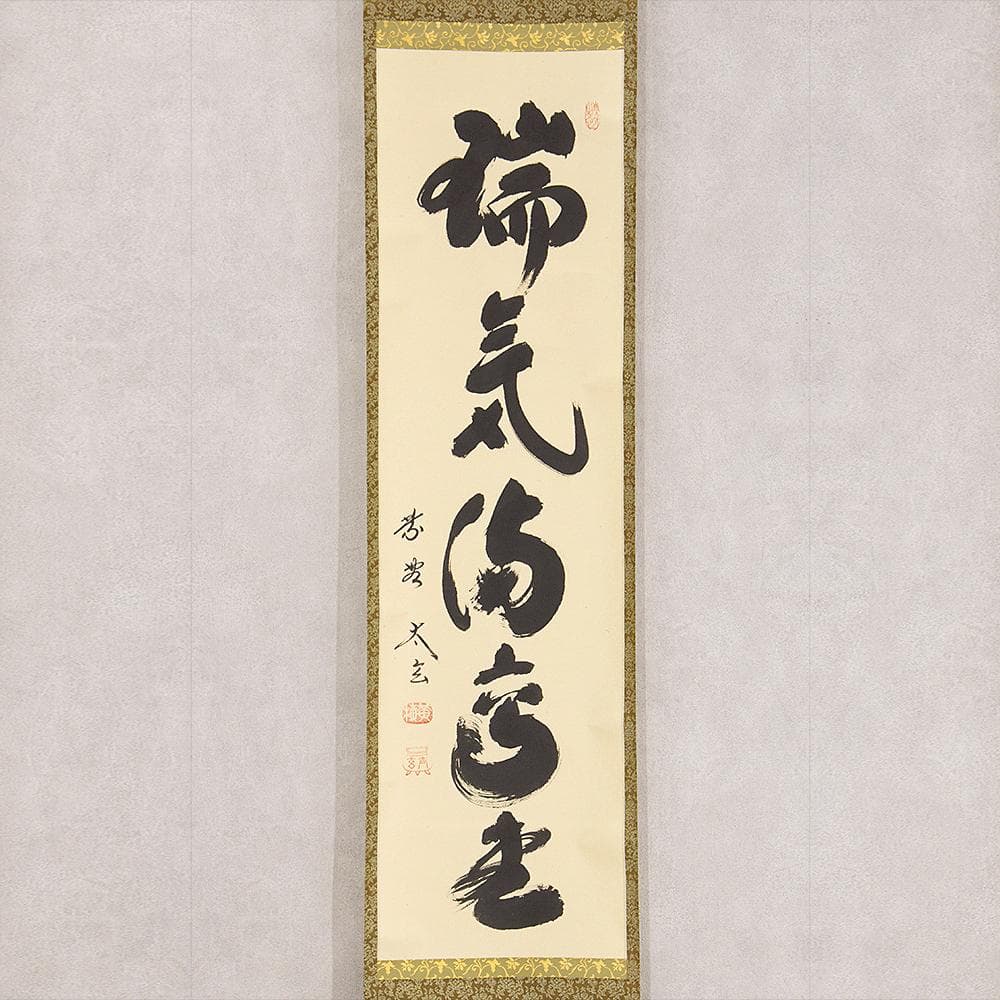 瑞気満高堂
紫野 太玄